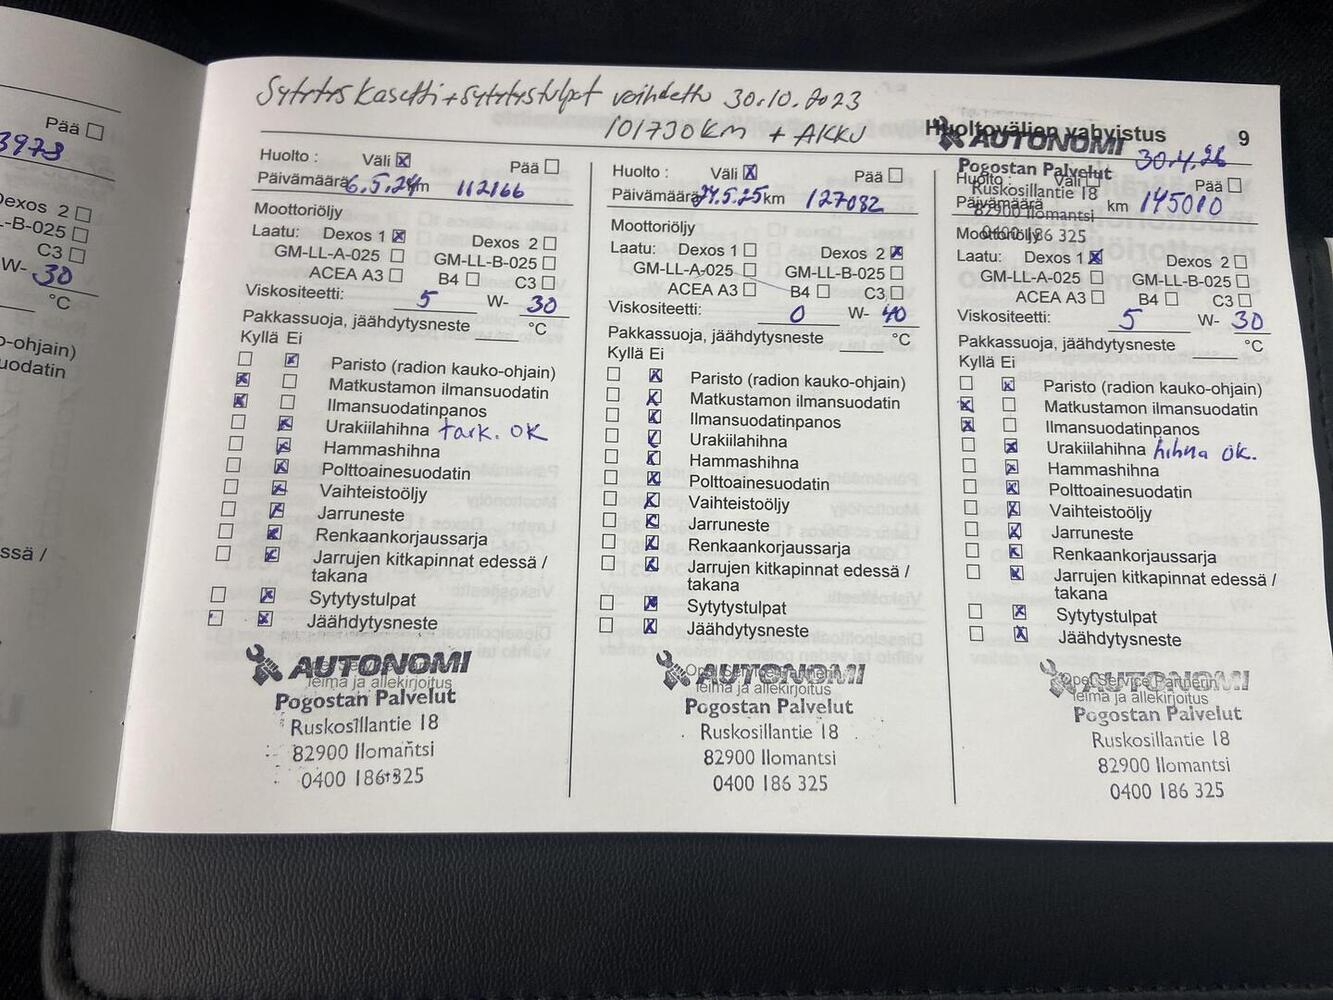 Sytytys kasetti + sytytystulpat vaihdettu 30.10.2023
101730km + AKKU
Huoltovälien vahvistus 9
Pää
3973
Dexos 2
-B-025
C3
W- 30
°C
o-ohjain)
uodatin
ssä /
Huolto : Väli Pää
Päivämäärä 6.5.24 km 112166
Moottoriöljy
Laatu: Dexos 1 Dexos 2
GM-LL-A-025 GM-LL-B-025
ACEA A3 B4 C3
Viskositeetti: 5 W- 30
Pakkassuoja, jäähdytysneste °C
Kyllä Ei
Paristo (radion kauko-ohjain)
Matkustamon ilmansuodatin
Ilmansuodatinpanos
Urakiilahihna tark. OK
Hammashihna
Polttoainesuodatin
Vaihteistoöljy
Jarruneste
Renkaankorjaussarja
Jarrujen kitkapinnat edessä /
takana
Sytytystulpat
Jäähdytysneste
AUTONOMI
leima ja allekirjoitus
Pogostan Palvelut
Ruskosillantie 18
82900 Ilomantsi
0400 186 325
Huolto : Väli Pää
Päivämäärä 27.5.25 km 127082
Moottoriöljy
Laatu: Dexos 1 Dexos 2
GM-LL-A-025 GM-LL-B-025
ACEA A3 B4 C3
Viskositeetti: 0 W- 40
Pakkassuoja, jäähdytysneste °C
Kyllä Ei
Paristo (radion kauko-ohjain)
Matkustamon ilmansuodatin
Ilmansuodatinpanos
Urakiilahihna
Hammashihna
Polttoainesuodatin
Vaihteistoöljy
Jarruneste
Renkaankorjaussarja
Jarrujen kitkapinnat edessä /
takana
Sytytystulpat
Jäähdytysneste
AUTONOMI
leima ja allekirjoitus
Pogostan Palvelut
Ruskosillantie 18
82900 Ilomantsi
0400 186 325
AUTONOMI 30.4.26
Pogostan Palvelut
Huolto : Väli Pää
Ruskosillantie 18
Päivämäärä km 145010
82900 Ilomantsi
Moottoriöljy
0400 186 325
Laatu: Dexos 1 Dexos 2
GM-LL-A-025 GM-LL-B-025
ACEA A3 B4 C3
Viskositeetti: 5 W- 30
Pakkassuoja, jäähdytysneste °C
Kyllä Ei
Paristo (radion kauko-ohjain)
Matkustamon ilmansuodatin
Ilmansuodatinpanos
Urakiilahihna hihna ok.
Hammashihna
Polttoainesuodatin
Vaihteistoöljy
Jarruneste
Renkaankorjaussarja
Jarrujen kitkapinnat edessä /
takana
Sytytystulpat
Jäähdytysneste
AUTONOMI
leima ja allekirjoitus
Pogostan Palvelut
Ruskosillantie 18
82900 Ilomantsi
0400 186 325